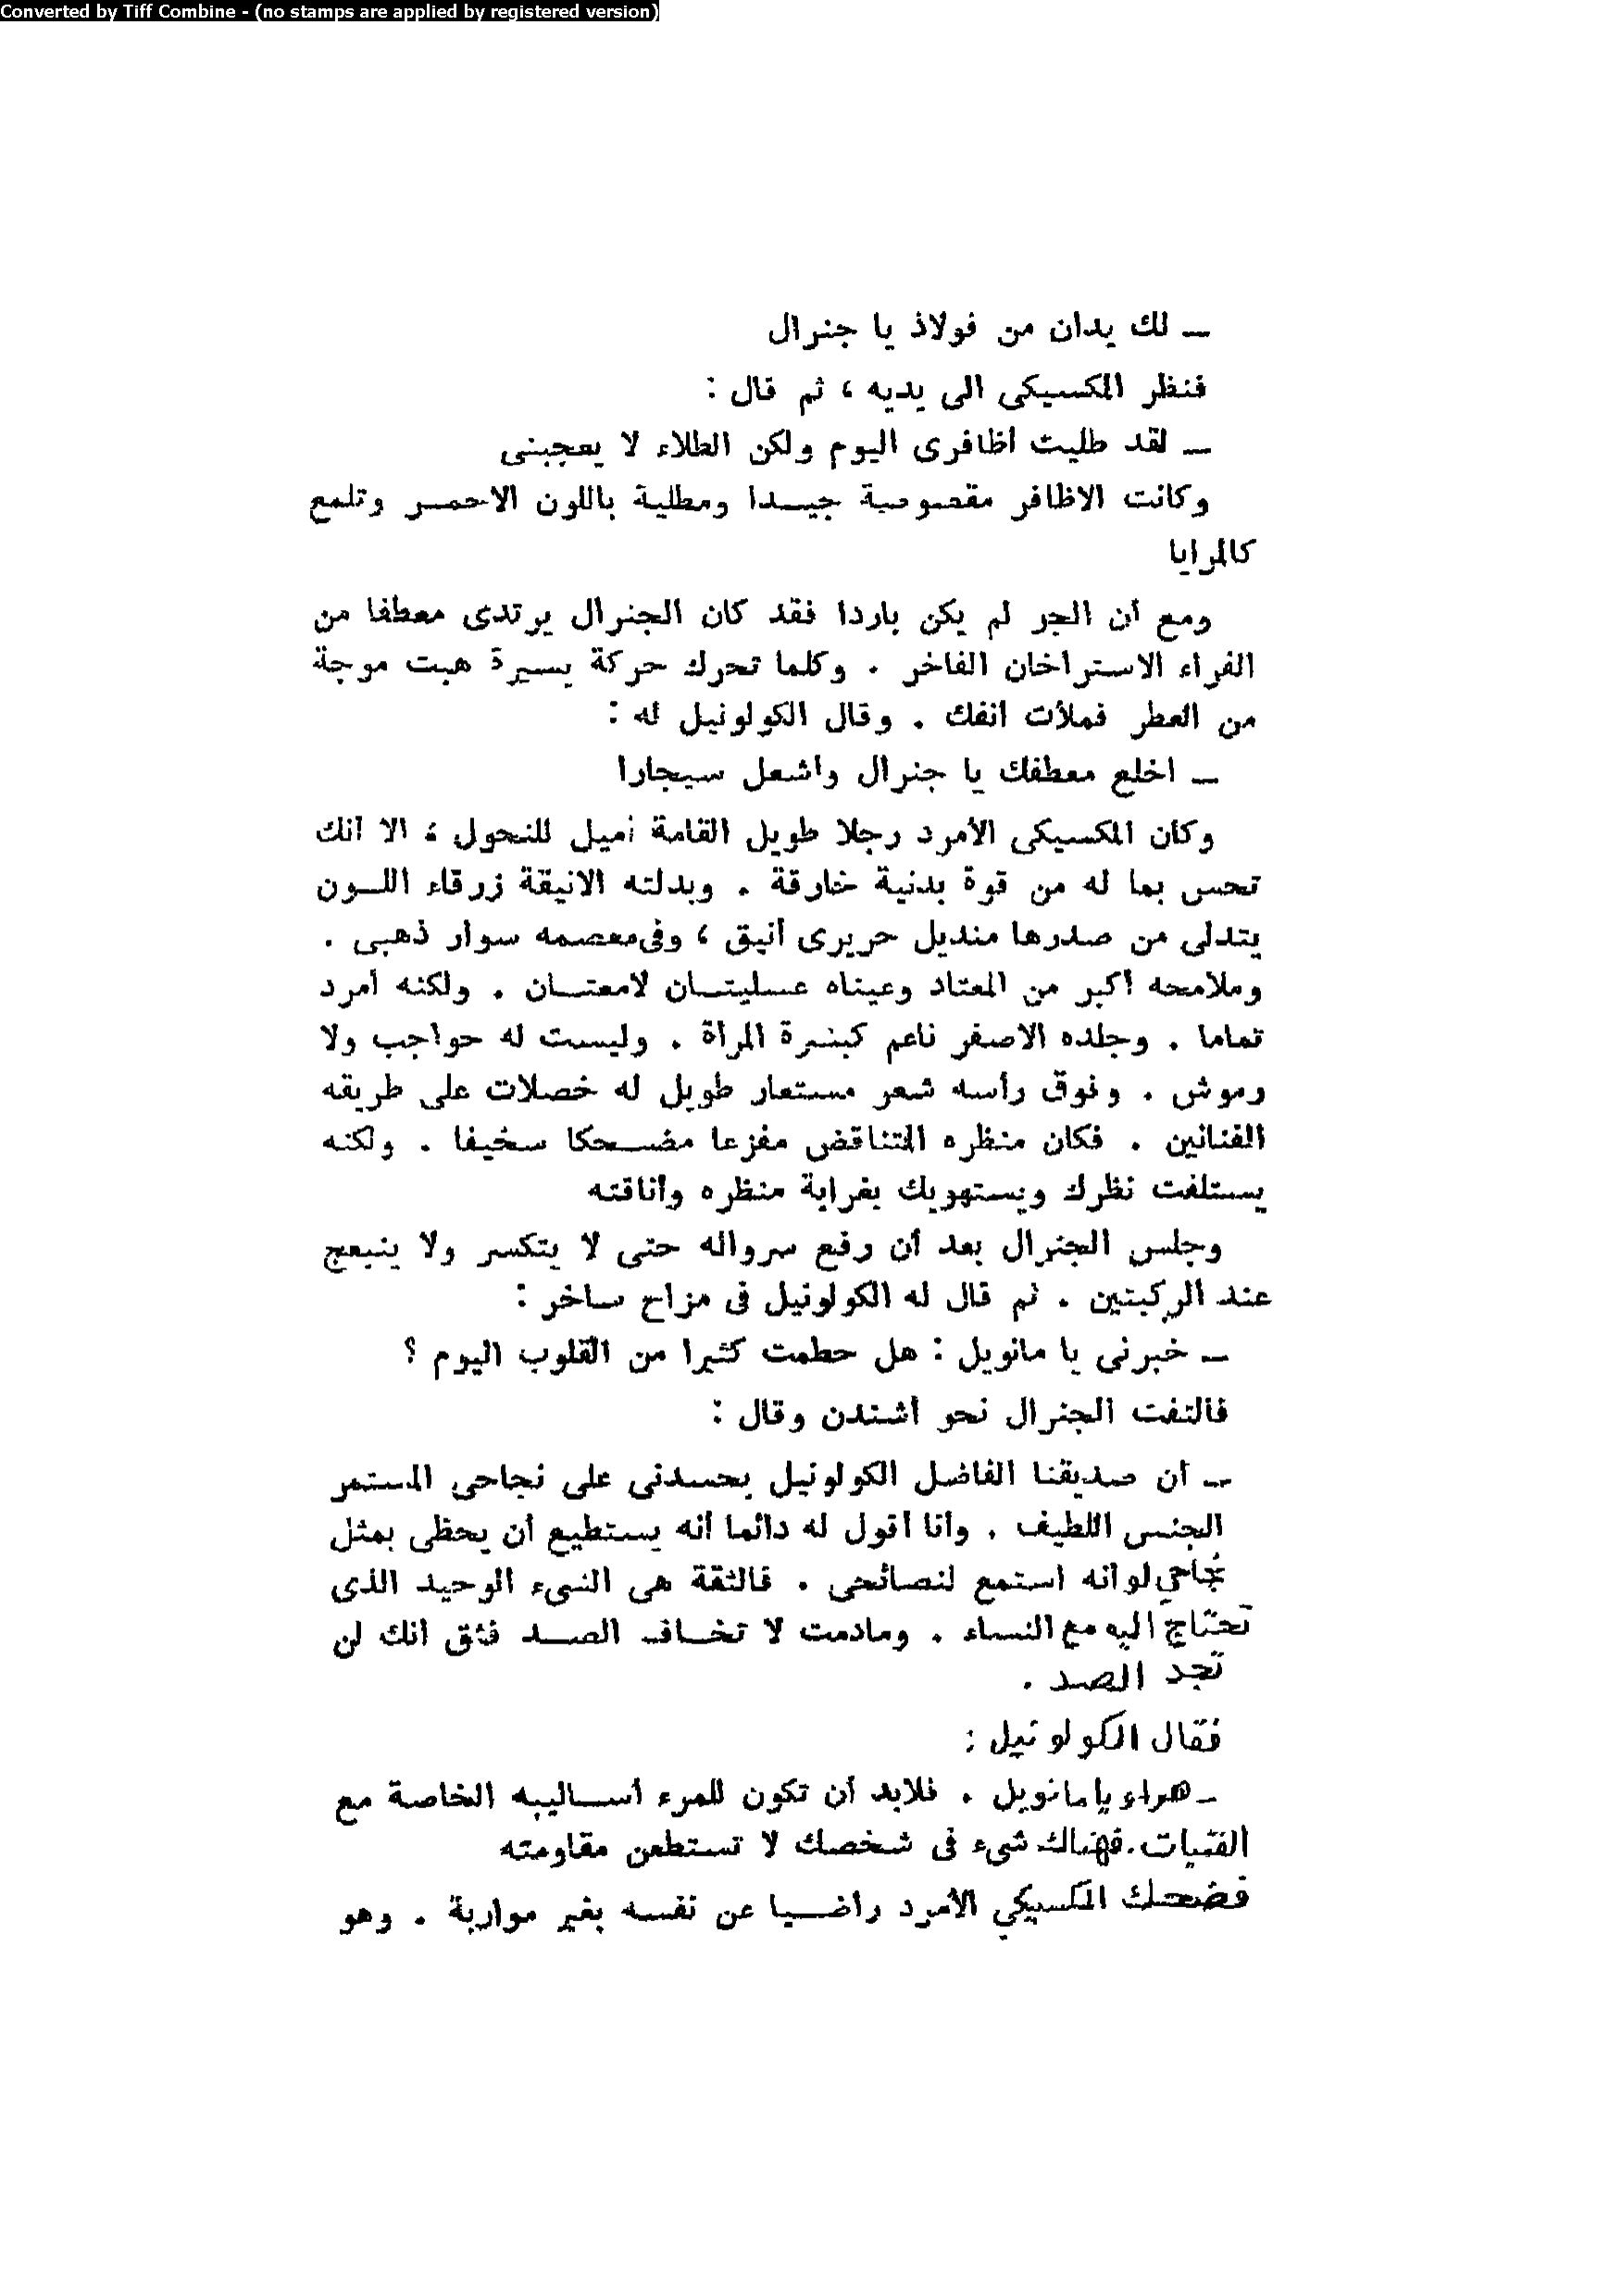 Converted by Tiff Combine - (no stamps are applied by registered version)
ـ لك يدان من فولاذ يا جنرال
فنظر المكسيكى الى يديه ، ثم قال :
ـ لقد طليت أظافرى اليوم ولكن الطلاء لا يعجبنى
وكانت الاظافر مقصوصة جيـــدا ومطلية باللون الاحمـــر وتلمع
كالمرايا
ومع أن الجو لم يكن باردا فقد كان الجنرال يرتدى معطفا من
الفراء الاستراخان الفاخر . وكلما تحرك حركة يسيرة هبت موجة
من العطر فملأت أنفك . وقال الكولونيل له :
ـ اخلع معطفك يا جنرال واشعل سيجارا
وكان المكسيكى الأمرد رجلا طويل القامة أميل للنحول ، الا أنك
تحس بما له من قوة بدنية خارقة . وبدلته الانيقة زرقاء اللـــون
يتدلى من صدرها منديل حريرى أنيق ، وفى معصمه سوار ذهبى .
وملامحه أكبر من المعتاد وعيناه عسليتــان لامعتــان . ولكنه أمرد
تماما . وجلده الاصفر ناعم كبشرة المرأة . وليست له حواجب ولا
رموش . وفوق رأسه شعر مستعار طويل له خصلات على طريقه
الفنانين . فكان منظره المتناقض مفزعا مضـــحكا سخيفا . ولكنه
يستلفت نظرك ويستهويك بغرابة منظره وأناقته
وجلس الجنرال بعد أن رفع سرواله حتى لا يتكسر ولا ينبعج
عند الركبتين . ثم قال له الكولونيل فى مزاح ساخر :
ـ خبرنى يا مانويل : هل حطمت كثيرا من القلوب اليوم ؟
فالتفت الجنرال نحو أشندن وقال :
ـ أن صديقنا الفاضل الكولونيل يحسدنى على نجاحى المستمر
الجنس اللطيف . وأنا أقول له دائما أنه يستطيع أن يحظى بمثل
نجاحي لو أنه استمع لنصائحى . فالثقة هى الشىء الوحيد الذى
تحتاج اليه مع النساء . ومادمت لا تخــاف الصـــد فثق أنك لن
تجد الصد .
فقال الكولونيل :
ـ هراء يا مانويل . فلابد أن تكون للمرء أســاليبه الخاصة مع
الفتيات . فهناك شىء فى شخصك لا تستطعن مقاومته
فضحك المكسيكي الأمرد راضـــيا عن نفسه بغير مواربة . وهو